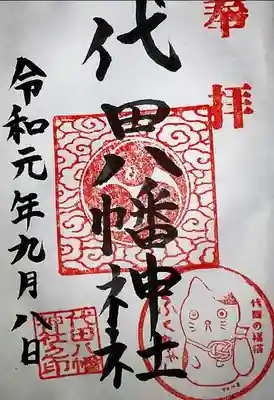 奉拝
代田八幡神社
令和元年九月八日
代田八幡
神社之印
代田の招福猫
ふくちゃ